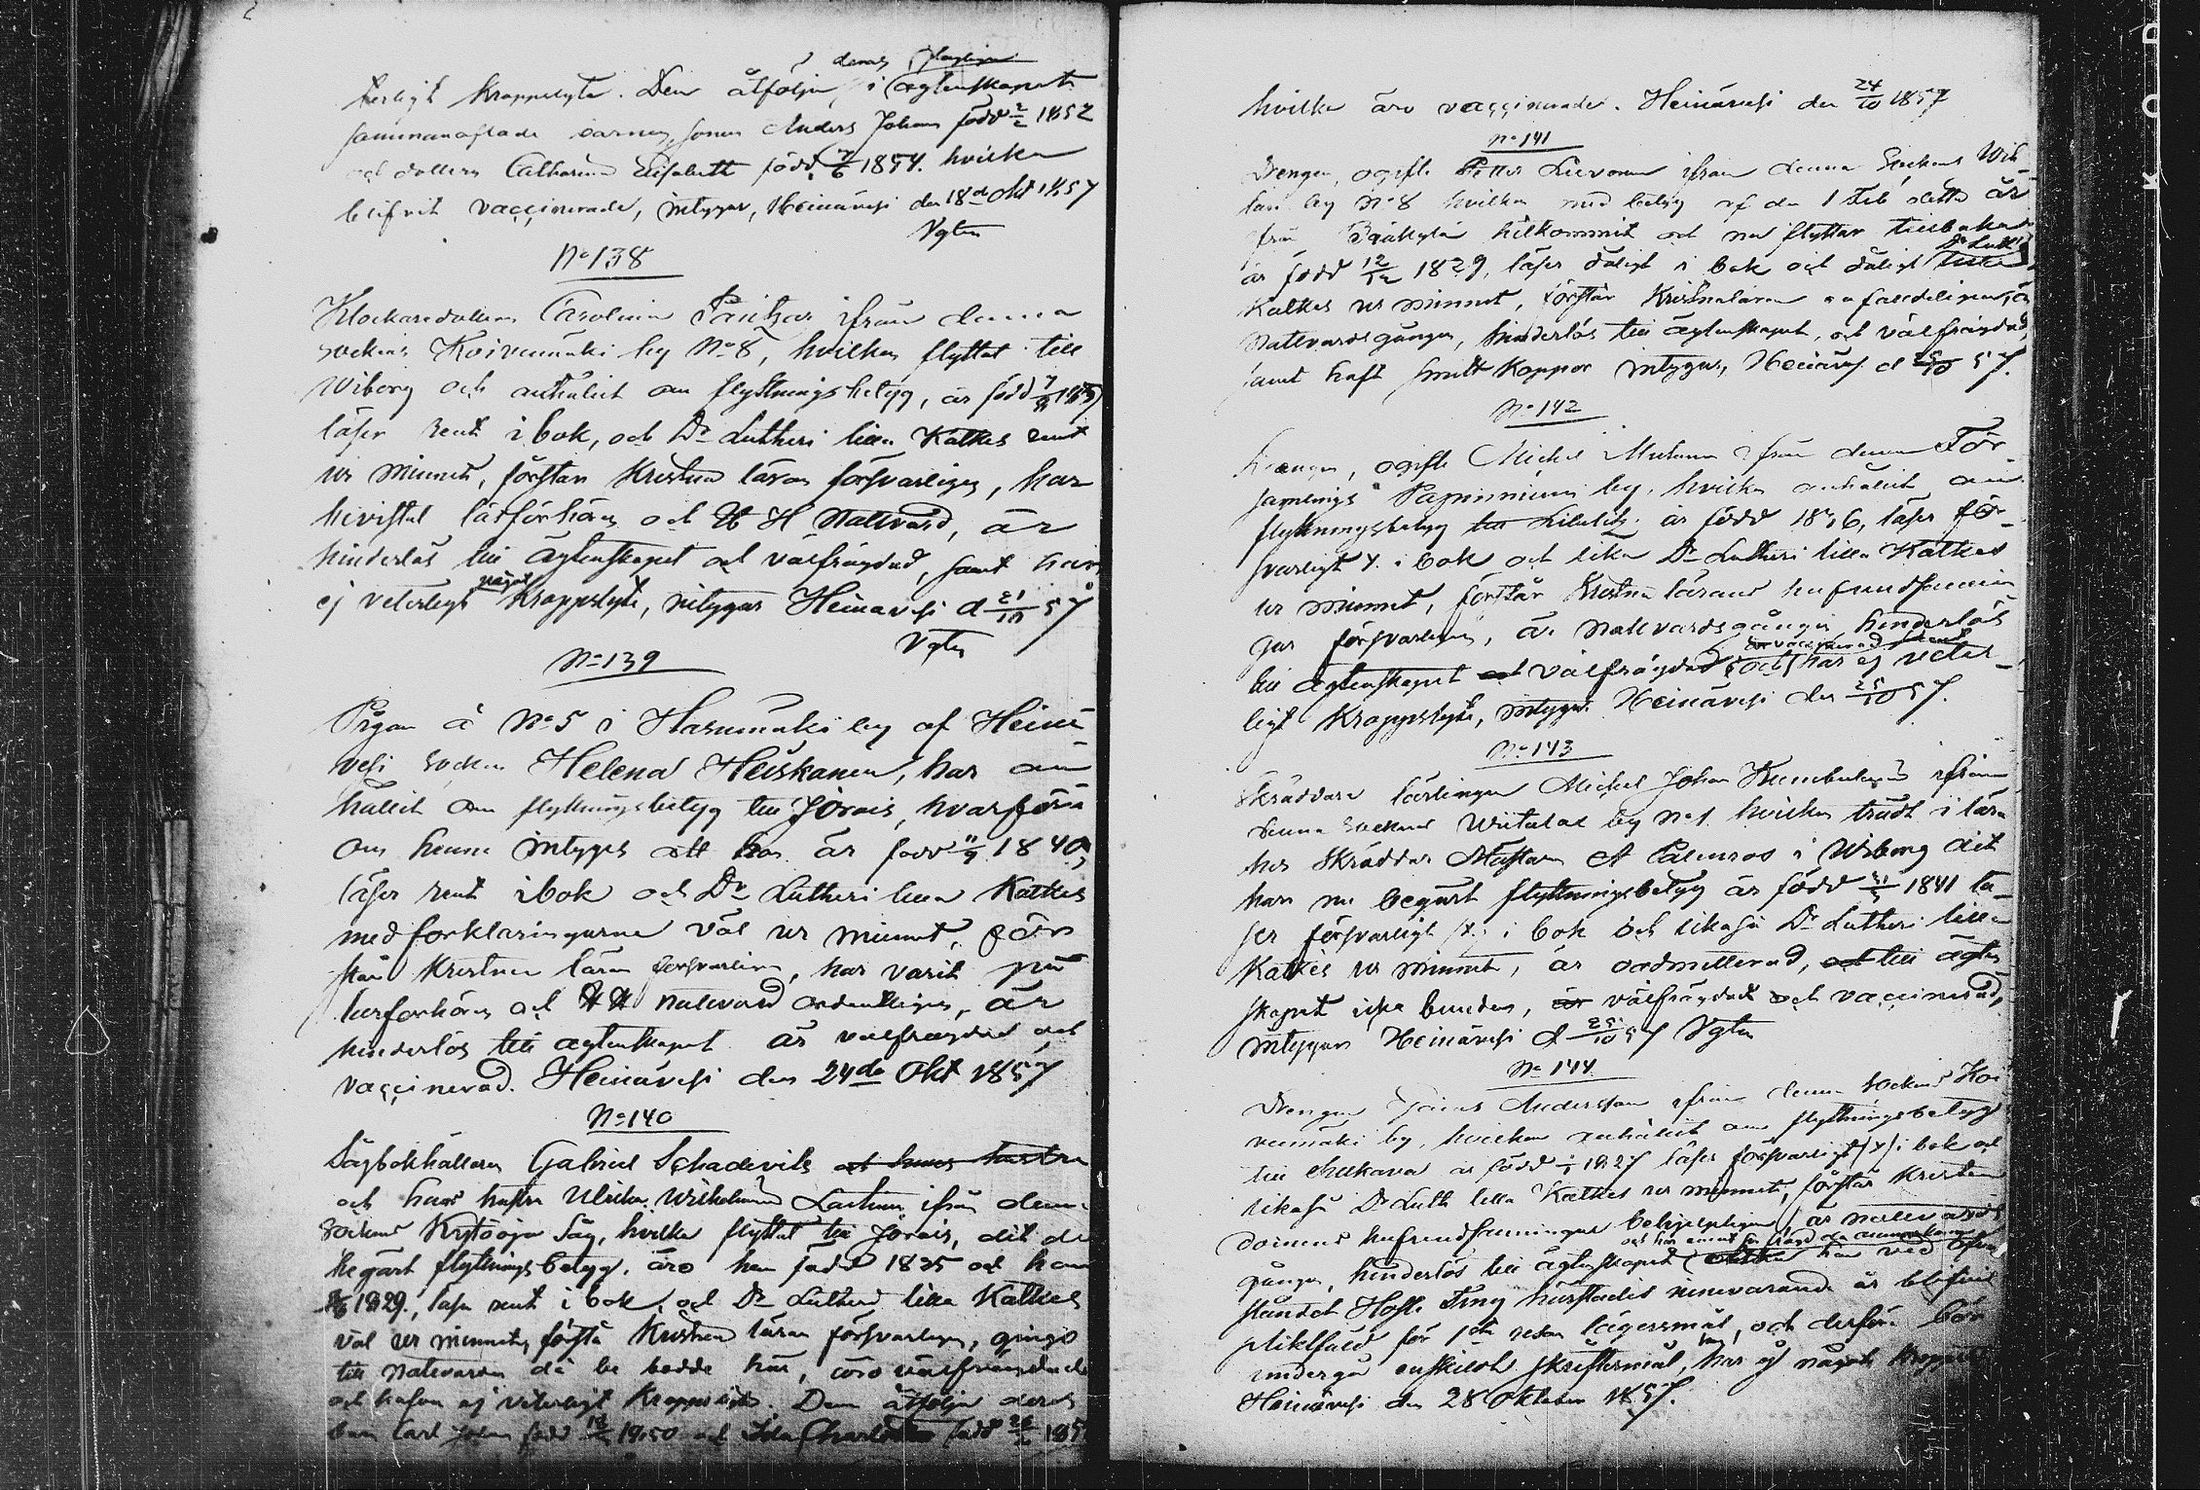 terligt kroppslyte. Dem åtfölja, i ägtenskapet
deras
sammanaflade barnen, sonen Anders Johan född 2/2 1852
och dottern Catharina Elisabeth född 7/6 1854. hvilka
blifvit vaccinerade, intygar, Heinävesi den 18de Okt 1857
Vgtn
No 138
Klockaredottern Carolina Pantzar ifrån denna
sockens Koivumäki by No 8, hvilken flyttat till
Wiborg och anhållit om flyttningsbetyg, är född
läser rent i bok, och Dr Lutheri lilla Kattkes rent
ur minnet, förstår Kristna läran försvarligen, har
bevistat läsförhören och H H Nattvard, är
hinderlös till ägtenskapet och välfrägdad, samt har
ej veterligt något kroppslyte, intygar Heinävesi d 21/10 57
Vgtn
No 139
Pigan å No 5 i Hasumäki by af Heinä
vesi Socken Helena Heiskanen, har an
hållit om flyttningsbetyg till Jorois, hvarföre
om henne intygas att hon är född 11/9 1840,
läser rent i bok och Dr Lutheri lilla Kattkes
med förklaringarne väl ur minnet, för
står Kristna läran försvarligen, har varit på
läsförhören och H H nattvard ordentligen, är
hinderlös till ägtenskapet är välfrägdad och
vaccinerad. Heinävesi den 24de Okt 1857
No 140
Sågbokhållaren Gabriel Schadevitz och hans hustru
och hans hustru Ulrika Wilhelmina ifrån denna
Sockens såg, hvilka flyttat till Jorois, dit de
begärt flyttningsbetyg. äro han född 1825 och hon
1829, läsa rent i bok, och Dr Lutheri lilla Kattkes
väl ur minnet, förstå Kristna läran försvarligen, gingo
till nattvarden då de bodde här, äro välfrägdade
och hafva ej veterligt kroppslyte. Dem åtfölja deras
barn Carl Johan född 1850 och Ida Charlotta född 26/2 185
hvilka äro vaccinerade. Heinävesi den 24/10 1857
No 141
Drengen, ogifte Petter Lievonen ifrån denna Sockens Wih
tari by No 8 hvilken med betyg af den 1 Feb detta år
från hitkommit och nu flyttar tillbaka
är född 12/12 1829, läser dåligt i bok och dåligt Dr Luth
Kattkes ur minnet, förstår Kristna läran är
nattvardsgången, hinderlös till ägtenskapet, och välfrägdad,
samt haft smittkoppor intygar, Heinäv. d 25/10 57.
No 142
Drengen, ogifte Michel ifrån denna För
samlings Papinniemi by, hvilken anhållit om
flyttningsbetyg till Libelitz är född 1836, läser för
svarligt i bok och lika Dr Lutheri lilla Kattkes
ur minnet, förstår Kristna lärans hufvudsannin
gar försvarligen, är nattvardsgången, hinderlös
till ägtenskapet och välfrägdad, är vaccinerad och har ej veter
ligt kroppslyte, intygar. Heinävesi den 25/10 57.
No 143
Skräddare lärlingen Michel Johan ifrån
denna sockens by No 1. hvilken trädt i lära
hos Skräddar Mästaren A i Wiborg dit
han nu begärt flyttningsbetyg är född 1841 lä
ser försvarligt i bok och likaså Dr Lutheri lilla
Kattkes ur minnet, är oadmitterad, och till ägten
skapet icke bunden, är välfrägdad och vaccinerad,
intygar Heinävesi d 25/10 57 Vgtn
No 144
Drengen Jonas Andersson ifrån denna Sockens Koi
vumäki by, hvilken anhållit om flyttningsbetyg
till är född 1827 läser försvarligt (x) i bok och
likaså Dr Luth lilla Kattkes ur minnet, förstår Kristen
domens hufvudsanningar behjelpligen, är nattvards
gången, hinderlös till ägtenskapet har vid
ståndet Hösteting härstädes innevarande år blifvit
pliktfäld för 1sta resan lägersmål, och derför bör
undergå enskildt skriftermål, har ej något kroppslyte
Heinävesi den 28 Oktober 1857.